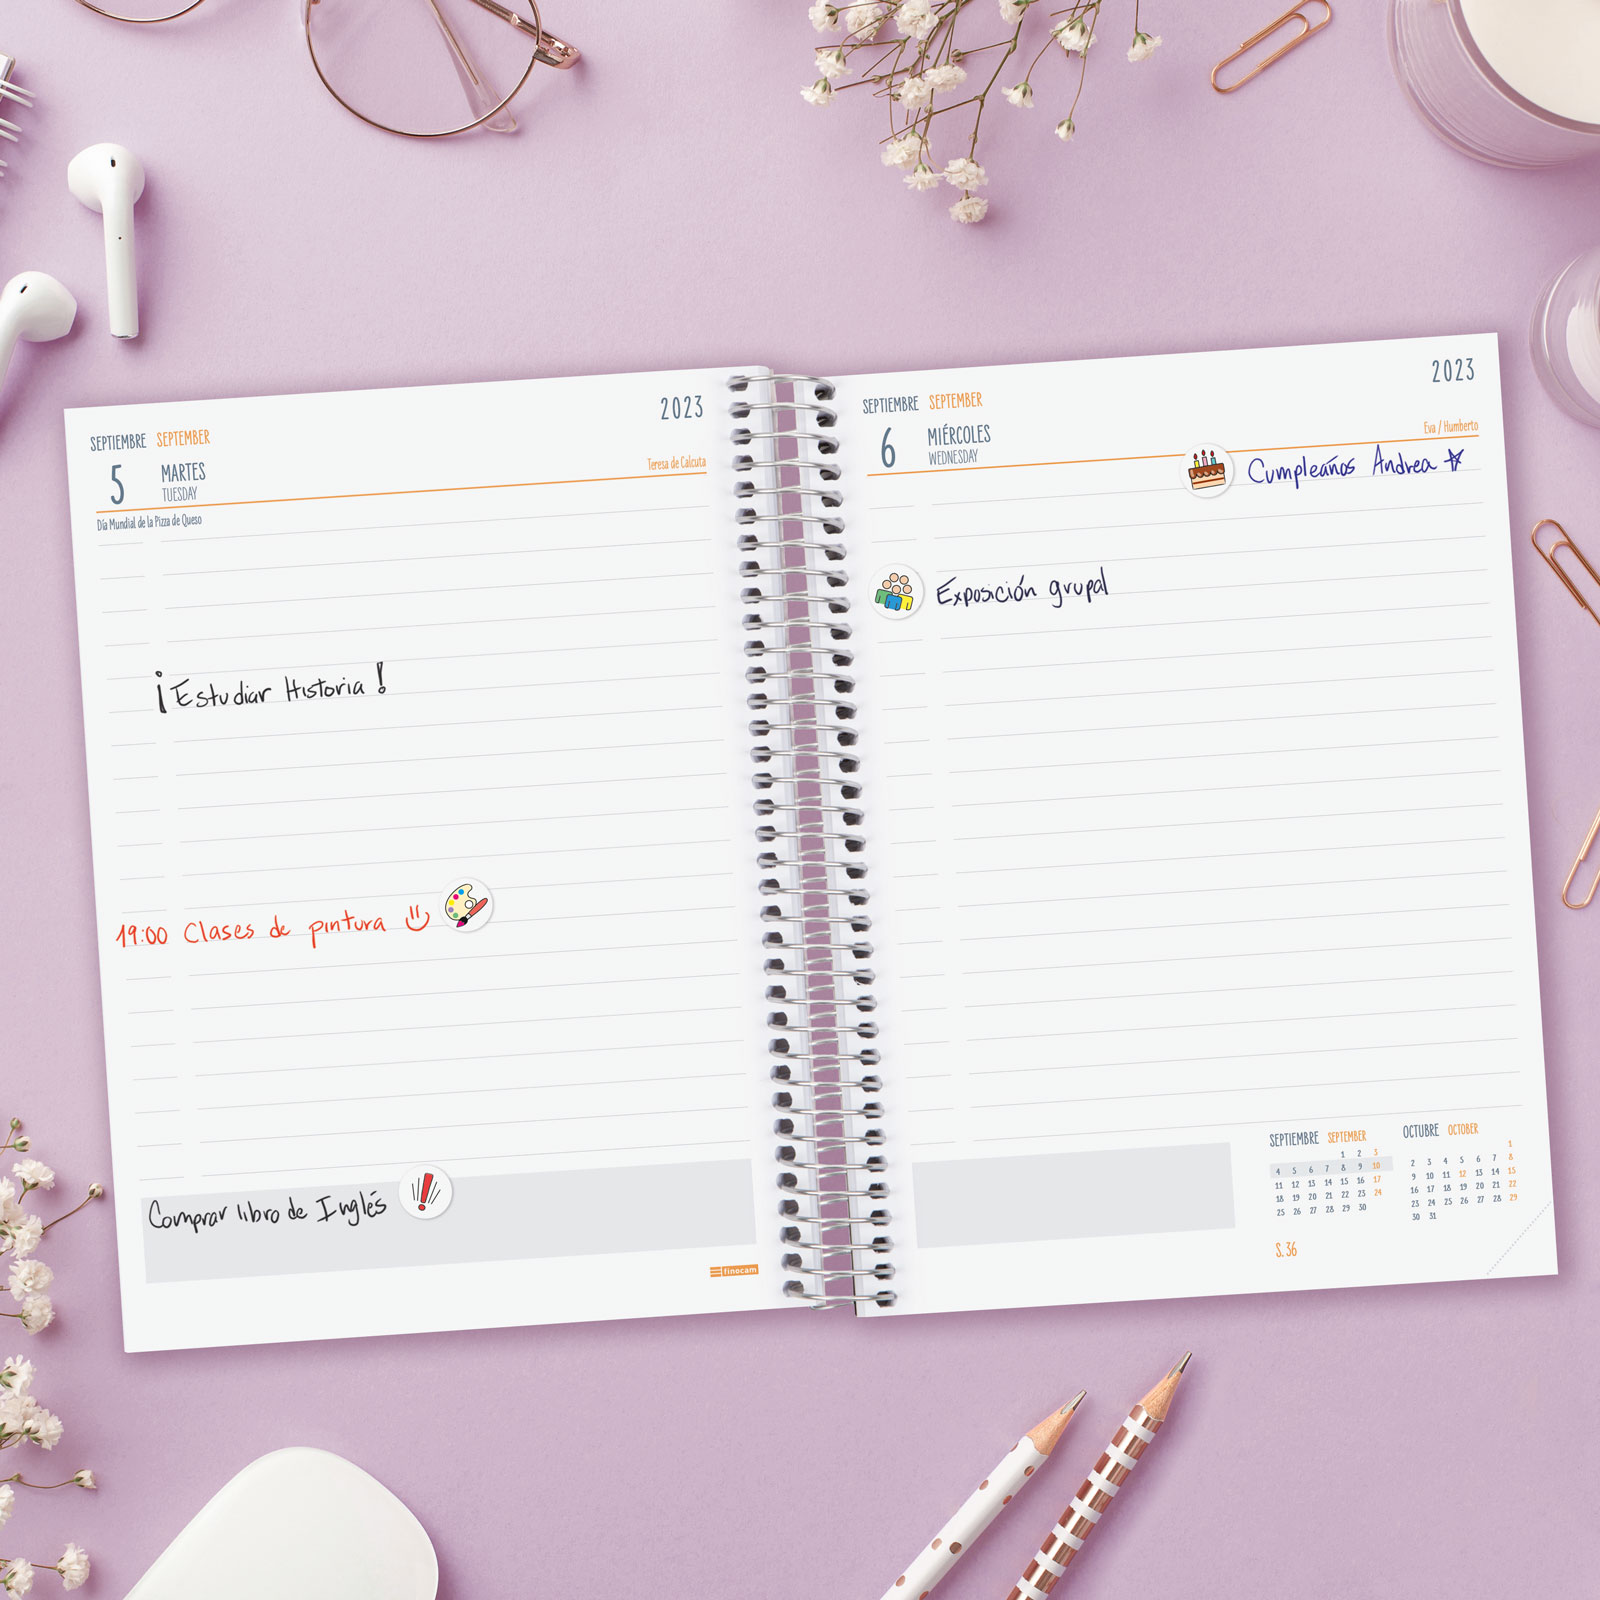 2023
SEPTIEMBRE SEPTEMBER
5 MARTES
TUESDAY
Teresa de Calcuta
Día Mundial de la Pizza de Queso
¡Estudiar Historia!
19:00 Clases de pintura
Comprar libro de Inglés
finocam
2023
SEPTIEMBRE SEPTEMBER
6 MIÉRCOLES
WEDNESDAY
Eva / Humberto
Cumpleaños Andrea
Exposición grupal
SEPTIEMBRE SEPTEMBER
1 2 3
4 5 6 7 8 9 10
11 12 13 14 15 16 17
18 19 20 21 22 23 24
25 26 27 28 29 30
S. 36
OCTUBRE OCTOBER
1
2 3 4 5 6 7 8
9 10 11 12 13 14 15
16 17 18 19 20 21 22
23 24 25 26 27 28 29
30 31